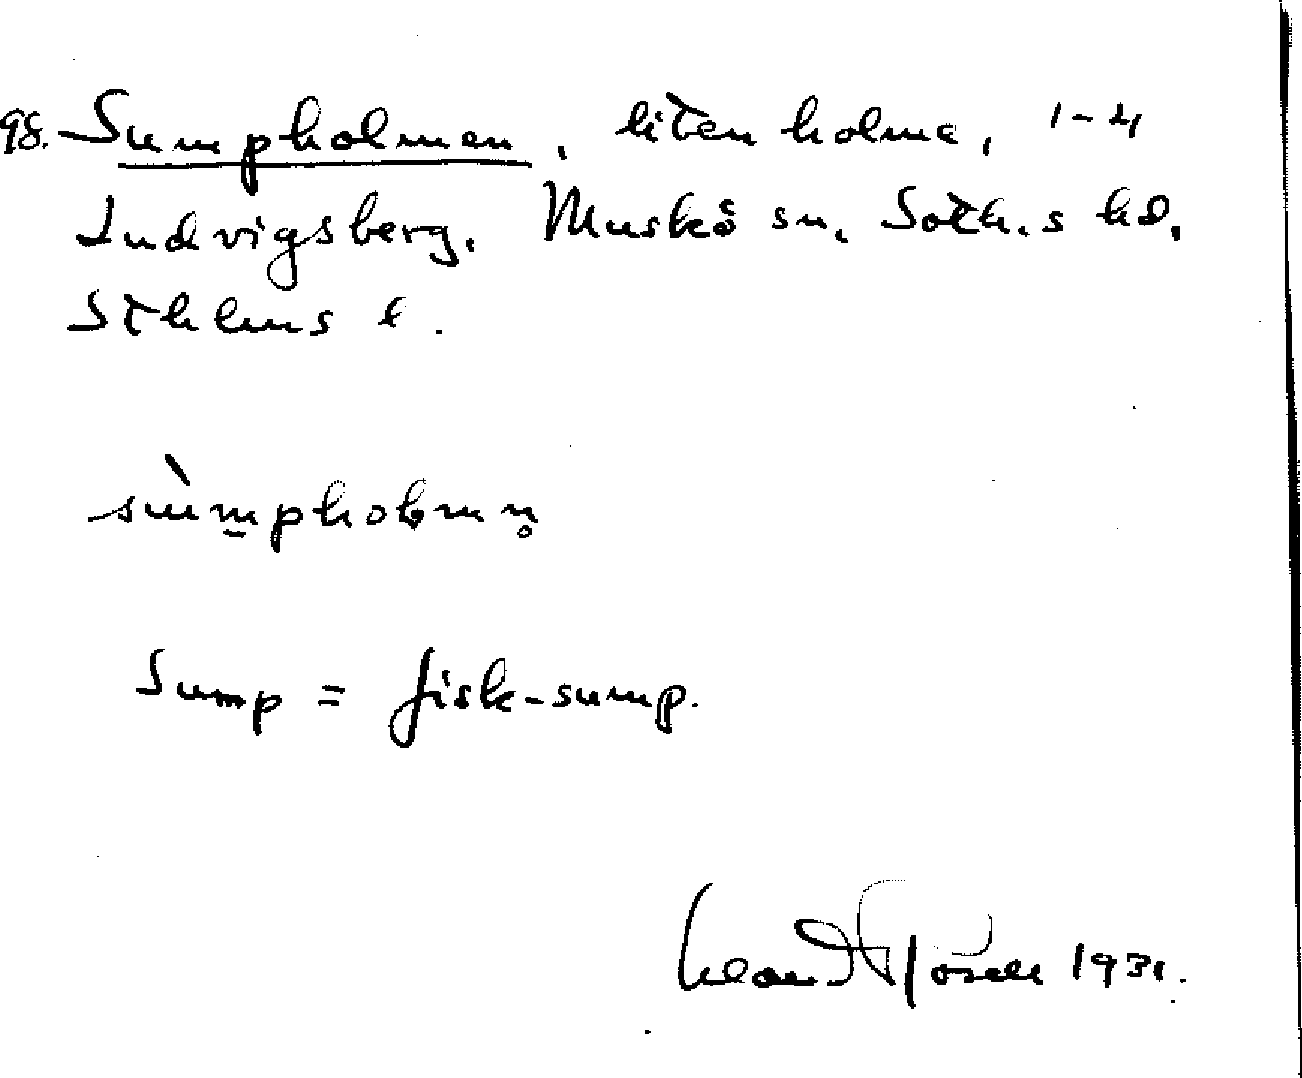 98. Sumpholmen, liten holme, 1-4
Ludvigsberg. Muskö sn. Soth.s hd.
Sthlms l.
sùmpholmn̥
Sump = fisk-sump.
1931.